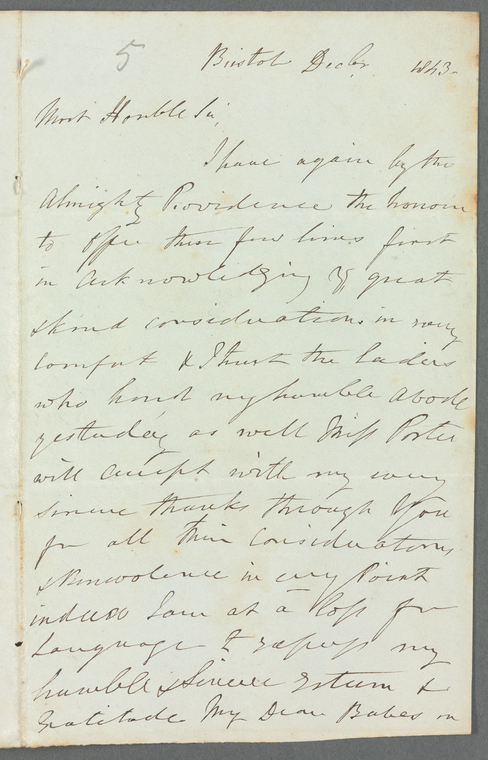 5
Bristol Decbr. 1843-
Most Honble Sir,
I have again by the
Almighty Providence the honour
to offer these few lines first
in acknowledging Yr great
& kind considerations in my
comfort & I trust the ladies
who honrd my humble abode
yesterday as well Miss Porter
will accept with my very
sincere thanks through You
for all their Considerations
& benevolence in evry Point
indeed I am at a loss for
Language to express my
humble & Sincere Esteem &
Gratitude My Dear Babes